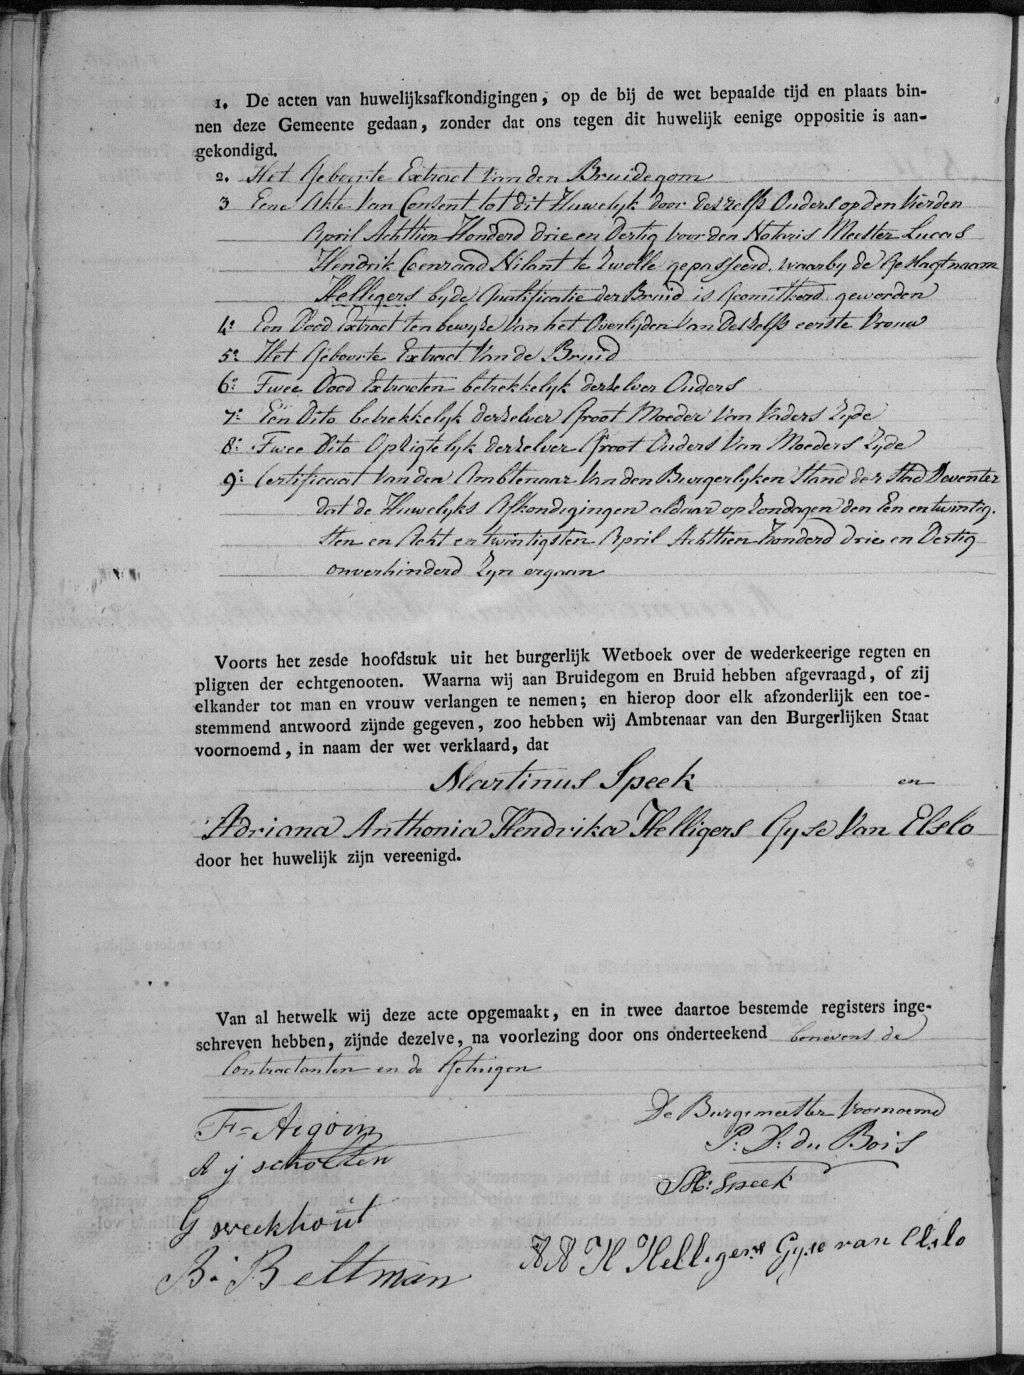 1. De acten van huwelijksafkondigingen, op de bij de wet bepaalde tijd en plaats bin-
nen deze Gemeente gedaan, zonder dat ons tegen dit huwelijk eenige oppositie is aan-
gekondigd.
2. Het Geboorte Extract van den Bruidegom
3 Eene Akte van Consent tot dit Huwelyk door deszelfs Ouders op den vierden
April Achttien Honderd drie en Dertig voor den Notaris Meester Lucas
Hendrik Coenraad Nilant te Zwolle gepasseerd, waarby de Geslagtnaam
Helligers by de Qualificatie der Bruid is geomitteerd geworden
4° Een Dood Extract ten bewyse van het Overlyden van Deszelfs eerste Vrouw
5° Het Geboorte Extract van de Bruid
6° Twee Dood Extracten betrekkelyk derzelver Ouders
7° Een Dito betrekkelyk derzelver Groot Moeder van Vaders Zyde
8° Twee Dito Opzigtelyk derzelver Groot Ouders van Moeders Zyde
9° Certificaat van den Ambtenaar van den Burgerlyken Stand der Stad Deventer
dat de Huwelyks Afkondigingen aldaar op Zondagen den Een en twintig-
sten en Acht en twintigsten April Achttien Honderd drie en Dertig
onverhinderd Zyn ergaan
Voorts het zesde hoofdstuk uit het burgerlijk Wetboek over de wederkeerige regten en
pligten der echtgenooten. Waarna wij aan Bruidegom en Bruid hebben afgevraagd, of zij
elkander tot man en vrouw verlangen te nemen; en hierop door elk afzonderlijk een toe-
stemmend antwoord zijnde gegeven, zoo hebben wij Ambtenaar van den Burgerlijken Staat
voornoemd, in naam der wet verklaard, dat
Martinus Speek en
Adriana Anthonia Hendrika Helligers Gyse van Elslo
door het huwelijk zijn vereenigd.
Van al hetwelk wij deze acte opgemaakt, en in twee daartoe bestemde registers inge-
schreven hebben, zijnde dezelve, na voorlezing door ons onderteekend benevens de
Contractanten en de Getuigen
De Burgemeester Voornoemd
F= Aigoin
P: D: du Bois
A y scholten
M: Speek
G weekhout
A A H Helligers Gyse van Elslo
B: Beltman